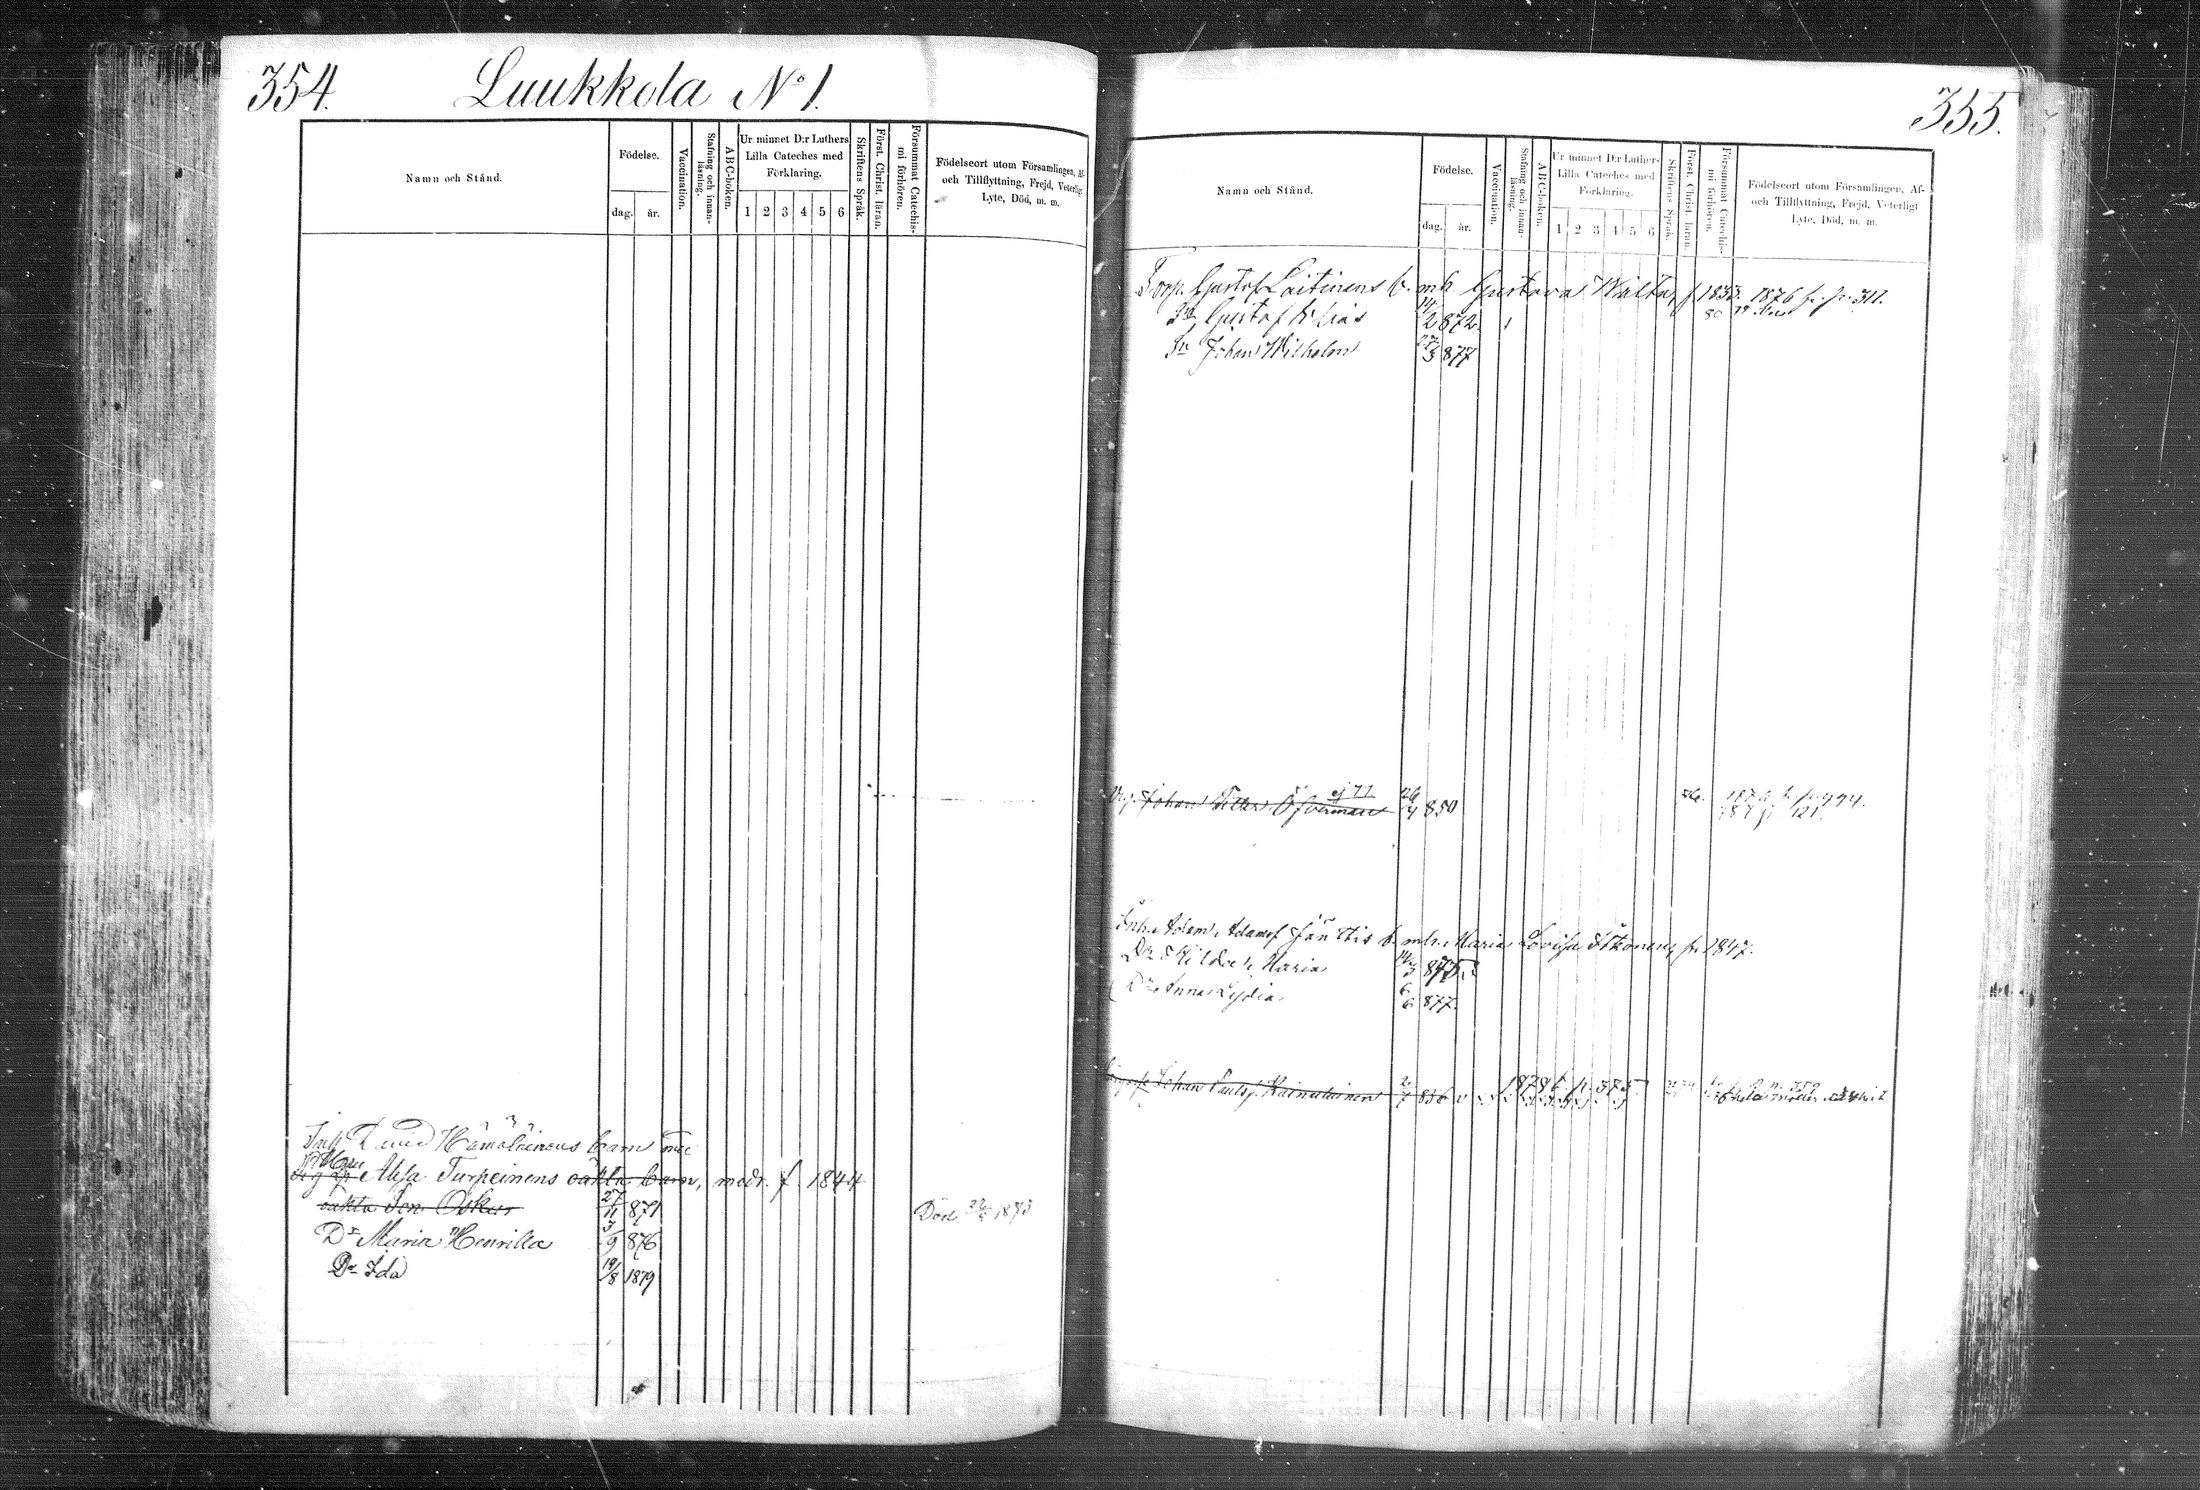 354. Luukkola No 1.
Namn och Stånd.
Födelse.
dag. år.
Vaccination.
Stafning och innan-
läsning.
ABC-boken.
Ur minnet D:r Luthers
Lilla Cateches med
Förklaring.
1 2 3 4 5 6
Skriftens Språk.
Först. Christ. läran.
Försummat Catechis-
mi förhören.
Födelseort utom Församlingen, Af-
och Tillflyttning, Frejd, Veterligt
Lyte, Död, m. m.
Inh. David Hämäläinens barn med
Alisa Turpeinens oäkta barn, modr. f. 1844
oäkta Son Oskar 27/11 871 Död 1873
Dr Maria Henrika 3/9 876
Dr Ida 19/8 1879
355.
Namn och Stånd.
Födelse.
dag. år.
Vaccination.
Stafning och innan-
läsning.
ABC-boken.
Ur minnet D:r Luthers
Lilla Cateches med
Förklaring.
1 2 3 4 5 6
Skriftens Språk.
Först. Christ. läran.
Försummat Catechis-
mi förhören.
Födelseort utom Församlingen, Af-
och Tillflyttning, Frejd, Veterligt
Lyte, Död, m. m.
Torp. Gustof Laitinens b. mh. Gustava Walta, f. 1833. 1876 fr. p. 311.
Sn Gustaf Elias 14/2 872. 80
Sn Johan Wilhelm 27/3 877
ej 77
Johan Öfverman 26/4 850 1876 fr. p. 494.
p. 121.
Inh. Adam Adamsf. Jänttis b. mh. Maria Lovisa Itkonen, f. 1847.
Dr Hilda Maria 14/3 875.
Dr Anna Lydia 6/6 877.
Johan Paulsf. Kainulainen 2/7 856 1878 p. 375